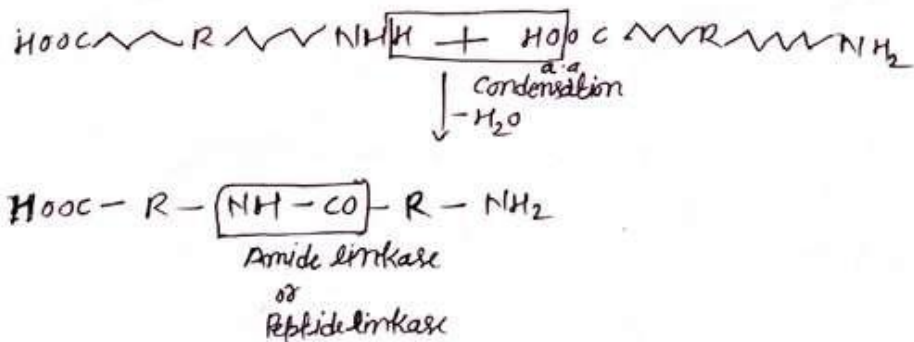 HOOC R NHH + HOOC R NH2
a.a
Condensation
-H2O
HOOC - R - NH - CO - R - NH2
Amide linkase
or
Peptide linkase